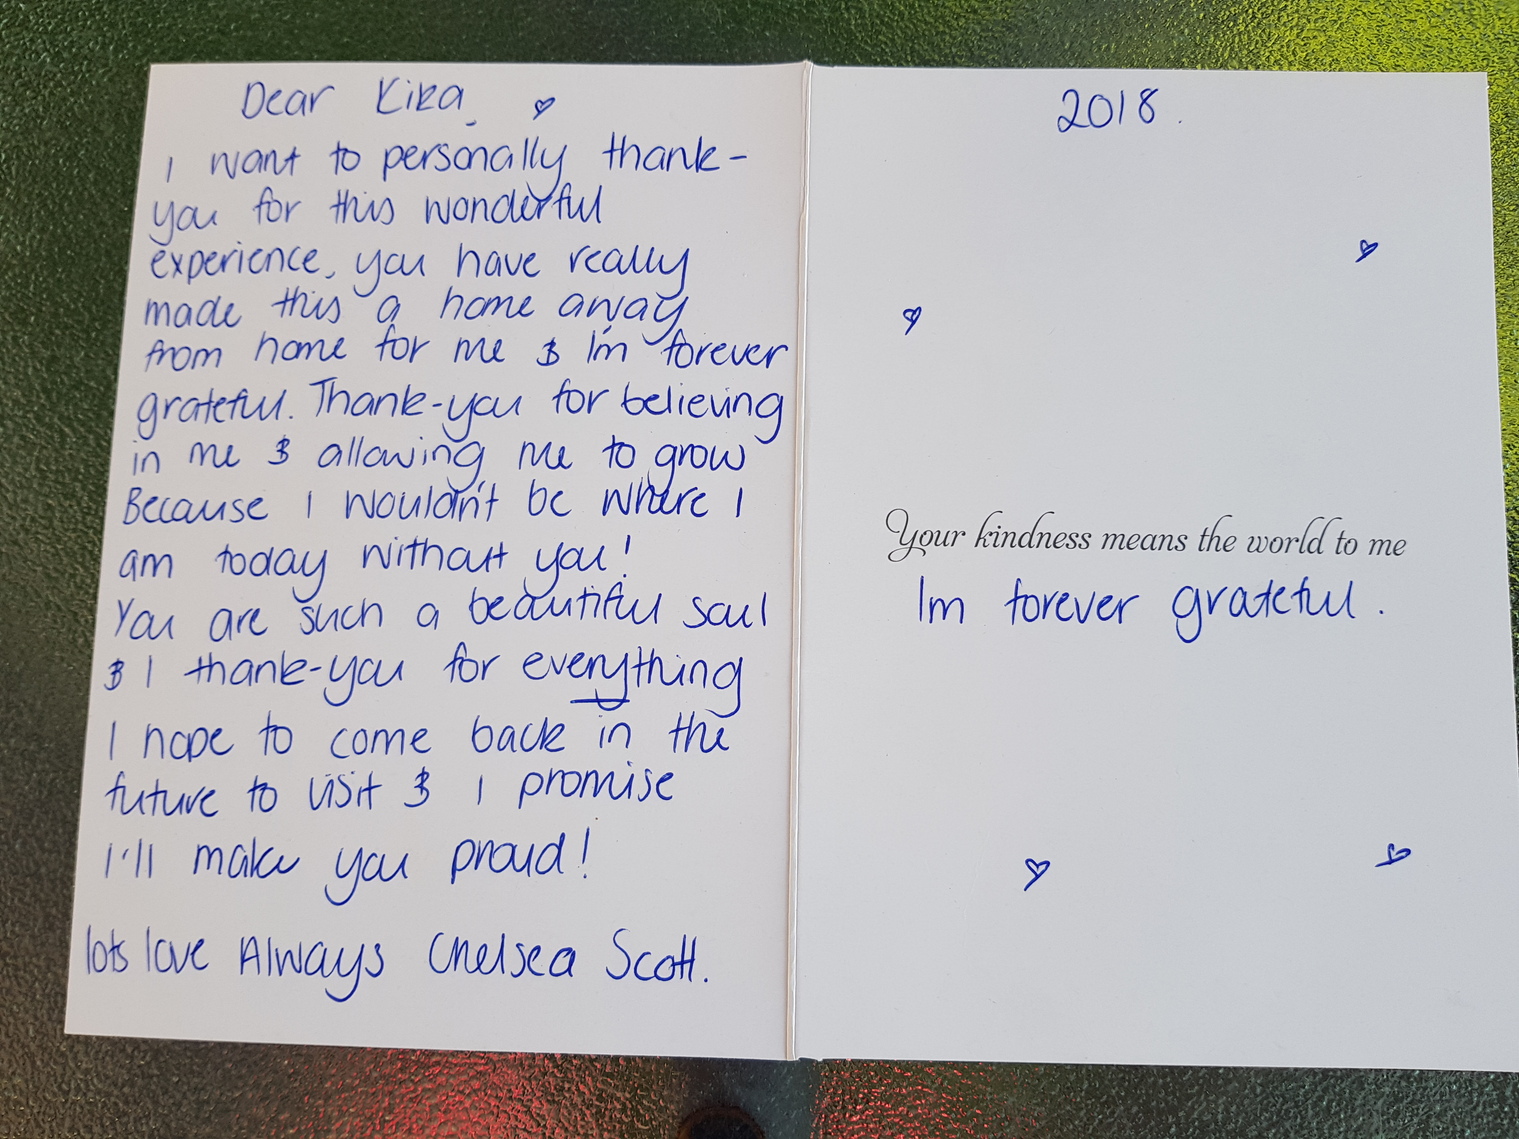 Dear Kika ♡
I want to personally thank-
you for this wonderful
experience, you have really
made this a home away
from home for me & Im forever
grateful. Thank-you for believing
in me & allowing me to grow
Because I wouldn't be where I
am today without you!
You are such a beautiful soul
& I thank-you for everything
I hope to come back in the
future to visit & I promise
I'll make you proud!
lots love Always Chelsea Scott.
2018.
Your kindness means the world to me
Im forever grateful.